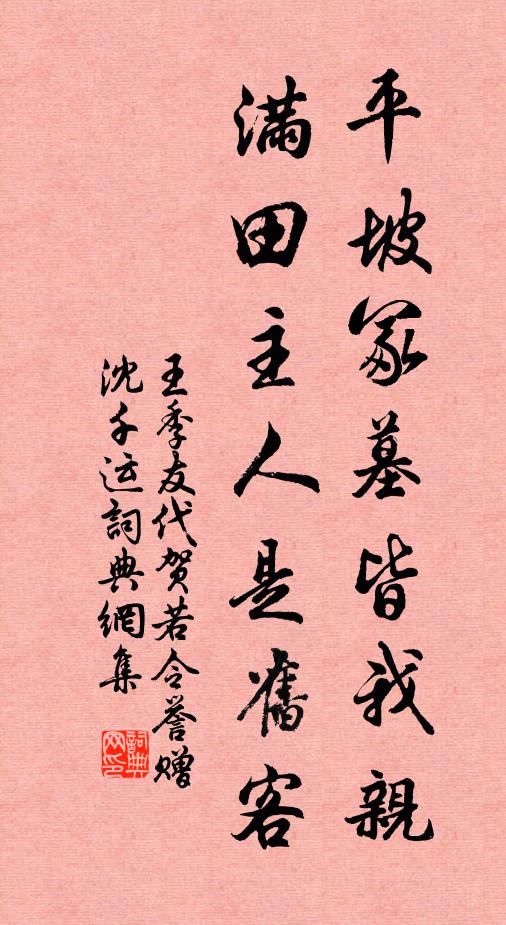 平坡冢墓皆我親
滿田主人是舊客
王季友代賀若令譽贈
沈千运詞典網集
詞典
网印